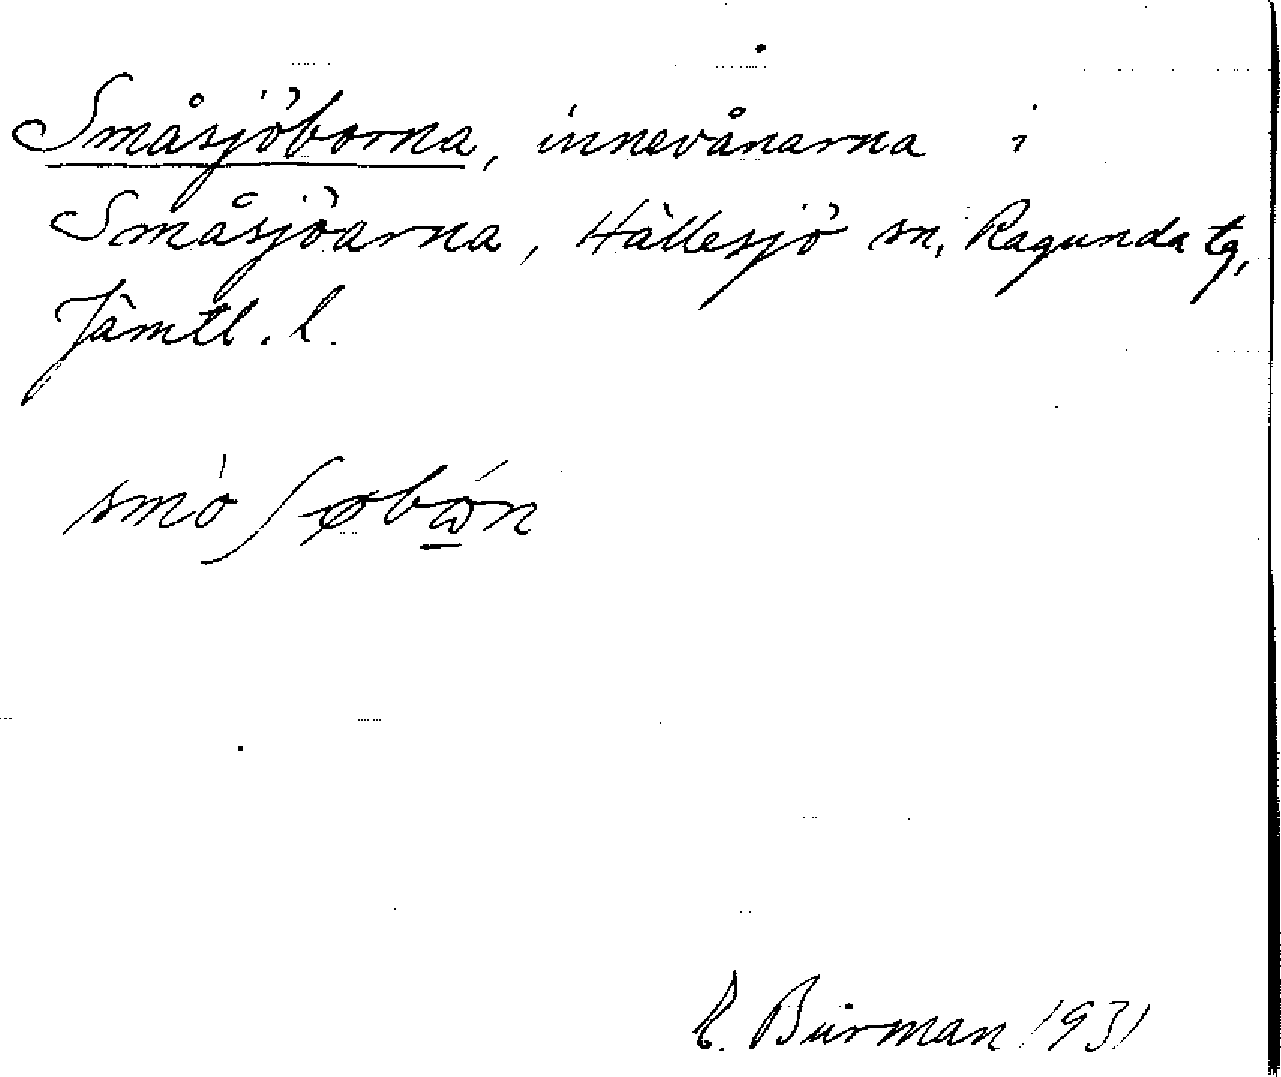 Småsjöborna, innevånarna i
Småsjöarna, Hällesjö sn, Ragunda tg,
Jämtl. l.
Burman 1931